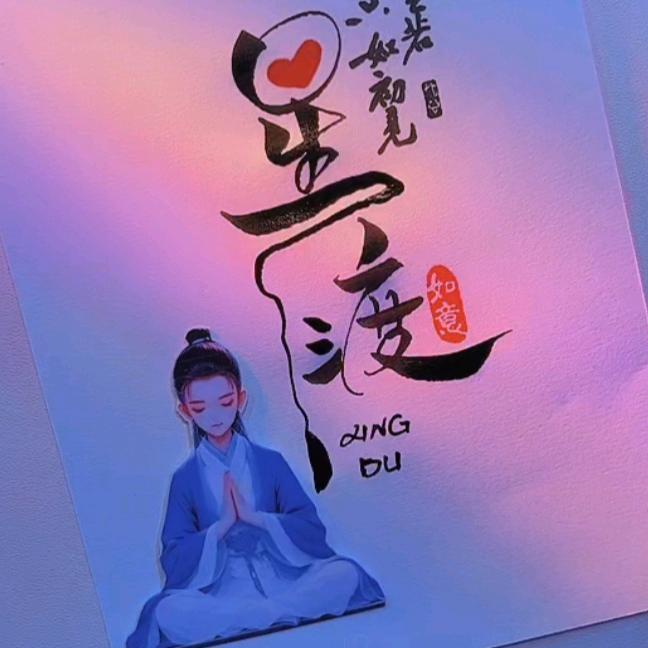 若
只如初見
星渡
如意
XING
DU